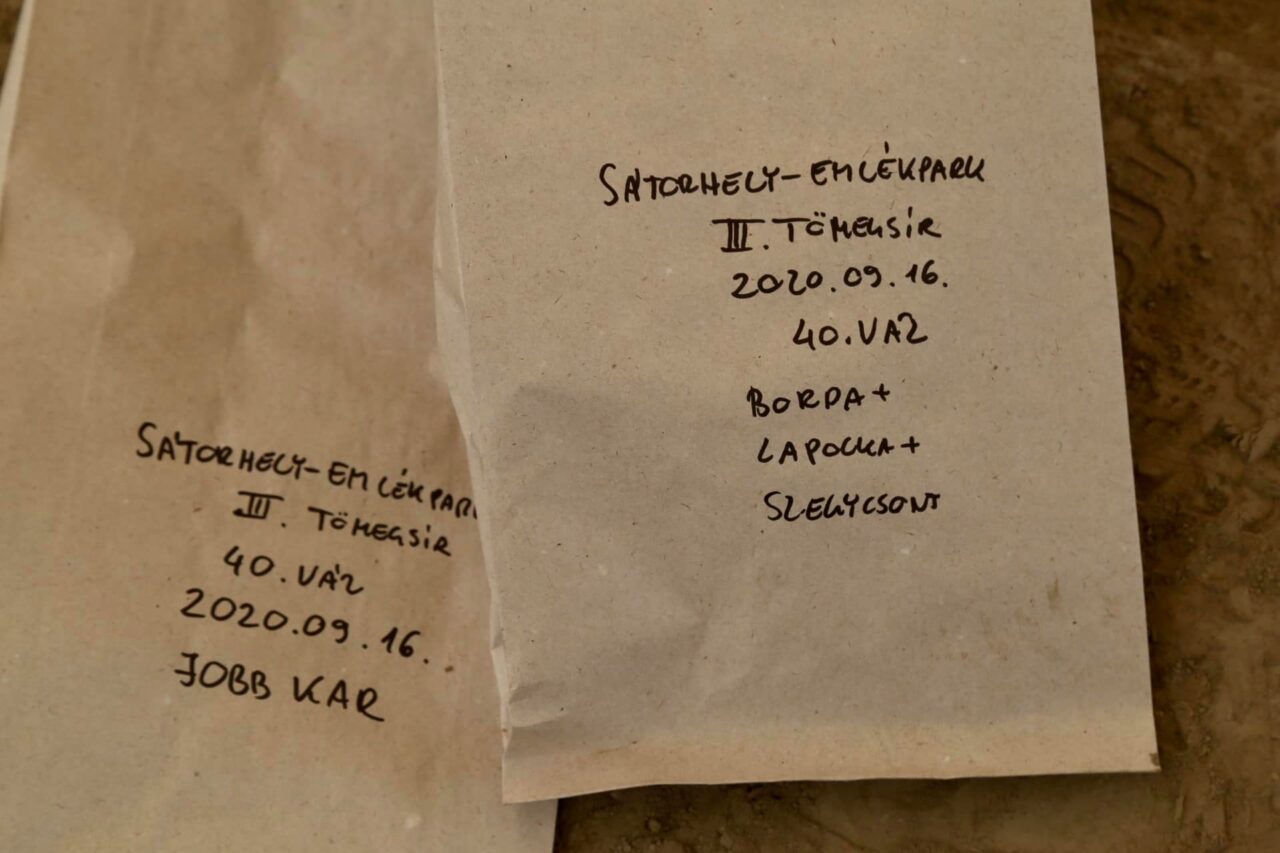 SÁTORHELY-EMLÉKPARK
III. TÖMEGSÍR
40. VÁZ
2020.09.16.
JOBB KAR
SÁTORHELY-EMLÉKPARK
III. TÖMEGSÍR
2020.09.16.
40. VÁZ
BORDA+
LAPOCKA+
SZEGYCSONT